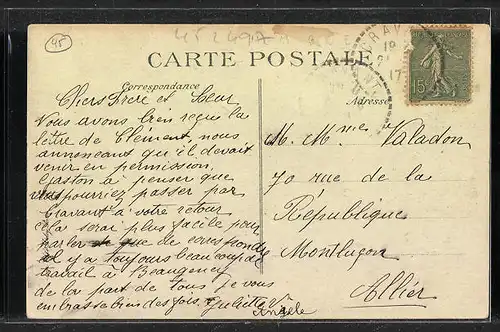 45
45 2497
CARTE POSTALE
Correspondance
Adresse
15
17
Chers Frère et Sœur
Vous avons bien reçu la
lettre de Clément nous
annonceant qu'il devait
venir en permission
Gaston à penser que
vous pourriez passer par
à votre retour
cela serai plus facile pour
parler que de correspondre
il y a toujours beaucoup de
travail à Beaugency
de la part de tous je vous
embrasse bien des fois. Juliette
Angèle
M. Mme Valadon
70 rue de la
République
Montluçon
Allier